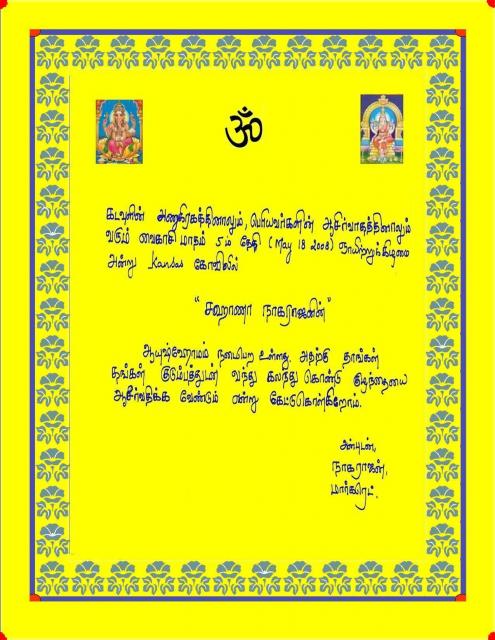 ॐ
கடவுளின் அனுகிரகத்தினாலும், பெரியவர்களின் ஆசிர்வாதத்தினாலும்
வரும் வைகாசி மாதம் 5ம் தேதி (May 18 2008) ஞாயிற்றுக்கிழமை
அன்று Kansas கோவிலில்
"சஹானா நாகராஜனின்"
ஆயுஷ்ஹோமம் நடைபெற உள்ளது. அதற்கு தாங்கள்
தங்கள் குடும்பத்துடன் வந்து கலந்து கொண்டு குழந்தையை
ஆசீர்வதிக்க வேண்டும் என்று கேட்டுகொள்கிறோம்.
அன்புடன்,
நாகராஜன்,
மார்கரெட்.